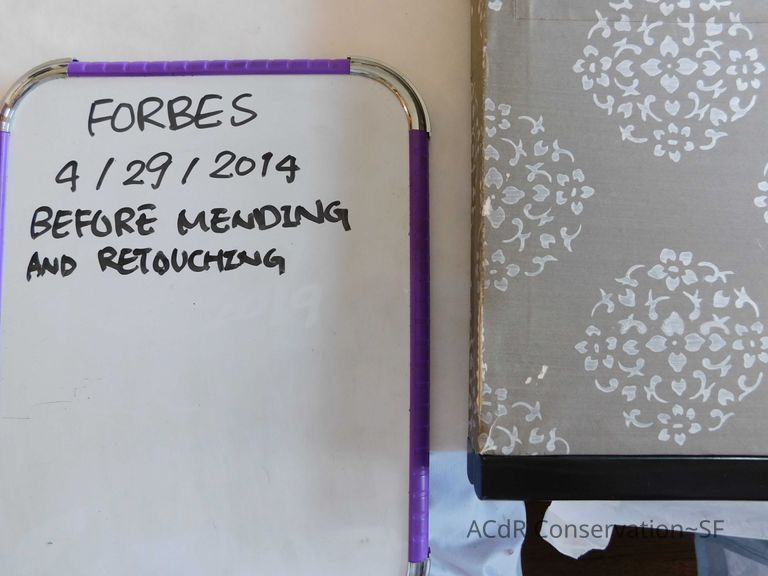 FORBES
4/29/2014
BEFORE MENDING
AND RETOUCHING
ACdR Conservation~SF